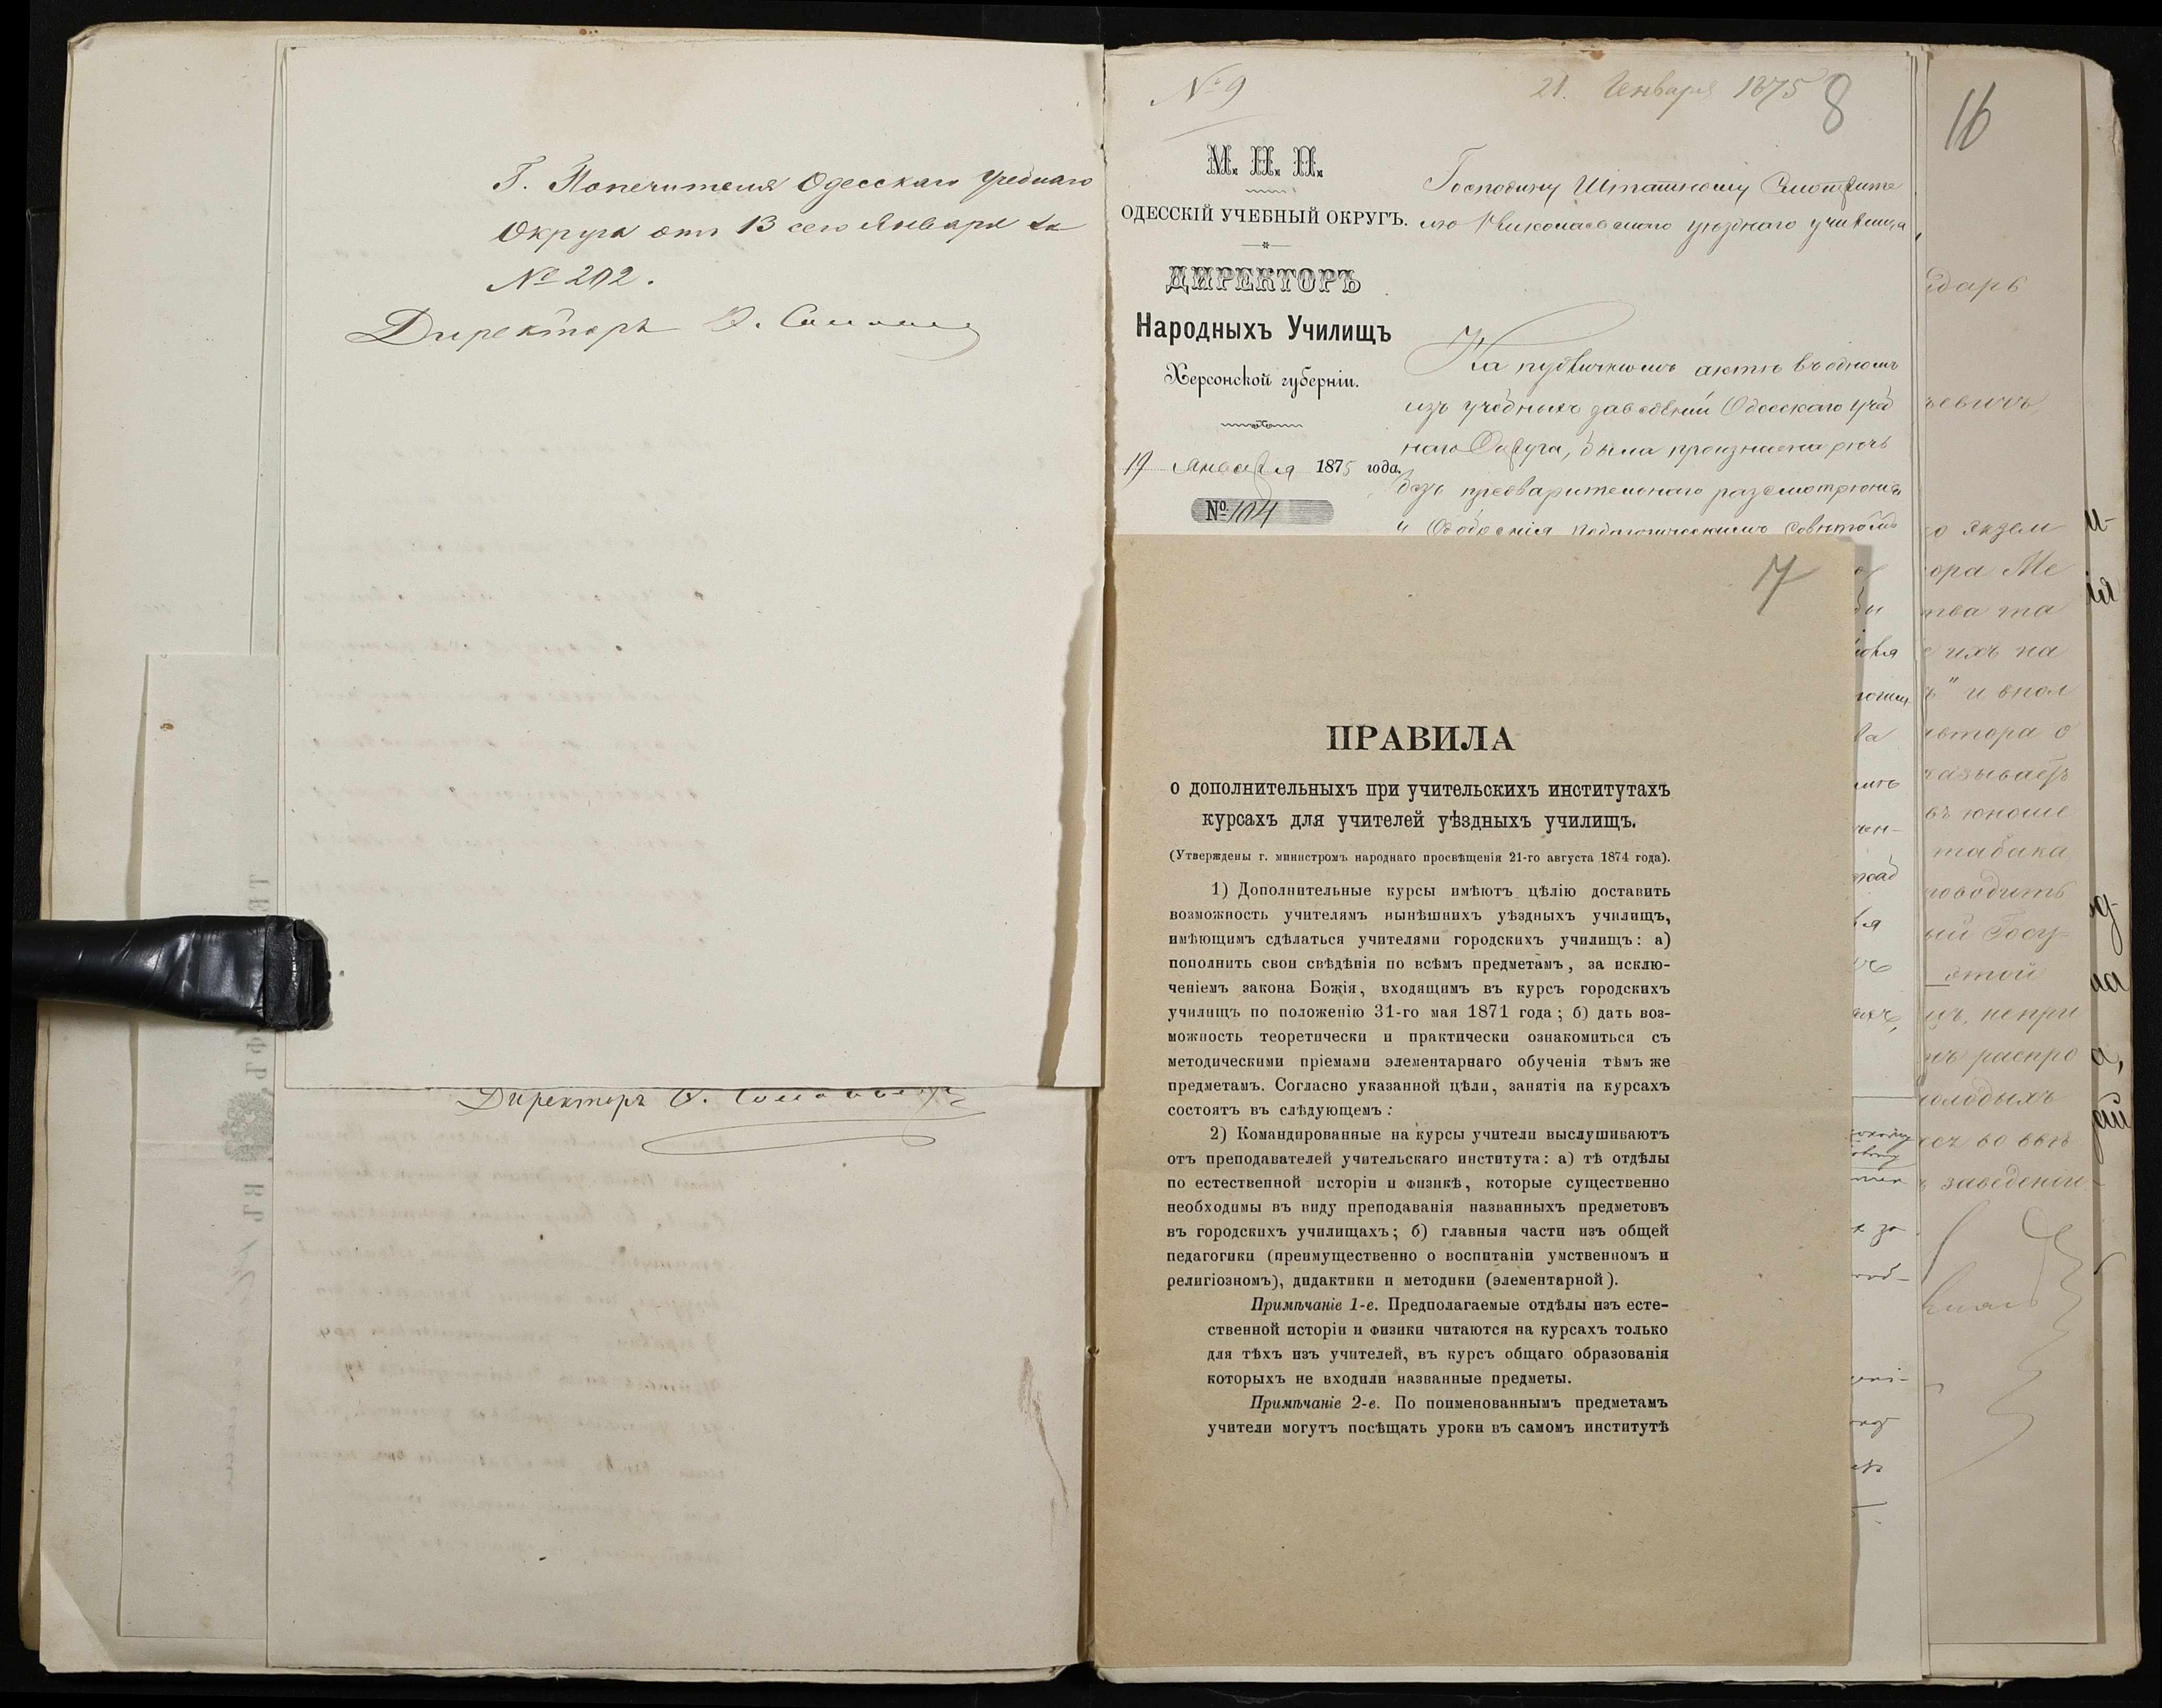 Г. Попечителя Одесскаго Учебнаго
Округа отъ 13 сего Января за
№ 202.
Директоръ
Директоръ
№ 9
21. Генваря 1875
8
М. Н. П.
ОДЕССКІЙ УЧЕБНЫЙ ОКРУГЪ.
ДИРЕКТОРЪ
Народныхъ Училищъ
Херсонской губерніи.
19 Января 1875 года.
№ 104
Господину Штатному Смотрите
лю Николаевскаго уѣзднаго училища
На публичномъ актѣ въ одномъ
изъ учебныхъ заведеній Одесскаго Учеб
наго Округа, была произнесена рѣчь
безъ предварительнаго разсмотрѣнія
и одобренія педагогическимъ совѣтомъ
7
ПРАВИЛА
о дополнительныхъ при учительскихъ институтахъ
курсахъ для учителей уѣздныхъ училищъ.
(Утверждены г. министромъ народнаго просвѣщенія 21-го августа 1874 года).
1) Дополнительные курсы имѣютъ цѣлію доставить
возможность учителямъ нынѣшнихъ уѣздныхъ училищъ,
имѣющимъ сдѣлаться учителями городскихъ училищъ: а)
пополнить свои свѣдѣнія по всѣмъ предметамъ, за исклю-
ченіемъ закона Божія, входящимъ въ курсъ городскихъ
училищъ по положенію 31-го мая 1871 года; б) дать воз-
можность теоретически и практически ознакомиться съ
методическими пріемами элементарнаго обученія тѣмъ же
предметамъ. Согласно указанной цѣли, занятія на курсахъ
состоятъ въ слѣдующемъ:
2) Командированные на курсы учители выслушиваютъ
отъ преподавателей учительскаго института: а) тѣ отдѣлы
по естественной исторіи и физикѣ, которые существенно
необходимы въ виду преподаванія названныхъ предметовъ
въ городскихъ училищахъ; б) главныя части изъ общей
педагогики (преимущественно о воспитаніи умственномъ и
религіозномъ), дидактики и методики (элементарной).
Примѣчаніе 1-е. Предполагаемые отдѣлы изъ есте-
ственной исторіи и физики читаются на курсахъ только
для тѣхъ изъ учителей, въ курсъ общаго образованія
которыхъ не входили названные предметы.
Примѣчаніе 2-е. По поименованнымъ предметамъ
учители могутъ посѣщать уроки въ самомъ институтѣ
16
дарь
ьевичъ,
о экзем
ора Ме
тва та
ихъ на
ъ" и впол
втора о
казываетъ
въ юноше
табака
роводить
ый Госу=
этой
непри
распро
молодыхъ
во всѣхъ
заведеніи